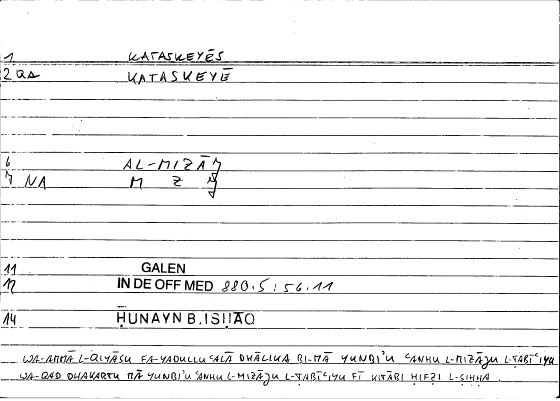 1 KATASKEYĒS
2 QA KATASKEYĒ
6 AL-MIZĀǦ
7 NA M Z Ǧ
11 GALEN
12 IN DE OFF MED 880.5 : 56.11
14 ḤUNAYN B. ISḤĀQ
WA-AMMĀ L-QIYĀSU FA-YADULLU ʿALĀ ḎHĀLIKA BI-MĀ YUNBIʾU ʿANHU L-MIZĀǦU L-ṬABĪʿĪYU
WA-QAD DHAKARTU MĀ YUNBIʾU ʿANHU L-MIZĀǦU L-ṬABĪʿĪYU FĪ KITĀBI ḤIFẒI L-ṢIḤḤA